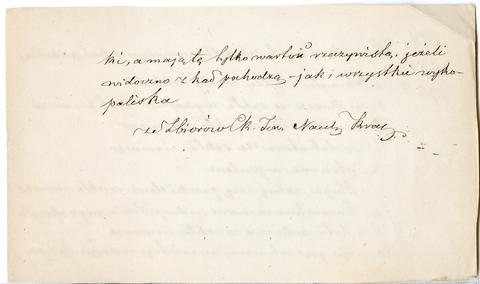 ki, a mają tę tylko wartość rzeczywistą, jeżeli
widoczno z kąd pochodzą - jak i wszystkie wyko-
paliska
ze Zbiorów Ck. Tow. Nauk. Krak.